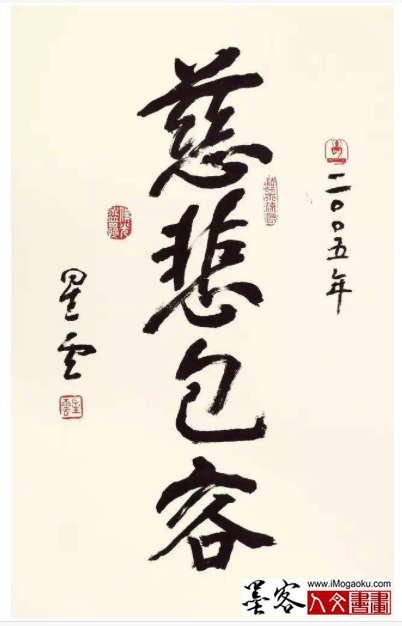 二〇〇五年
慈悲包容
星雲
墨客
www.iMogaoku.com
人文書畫